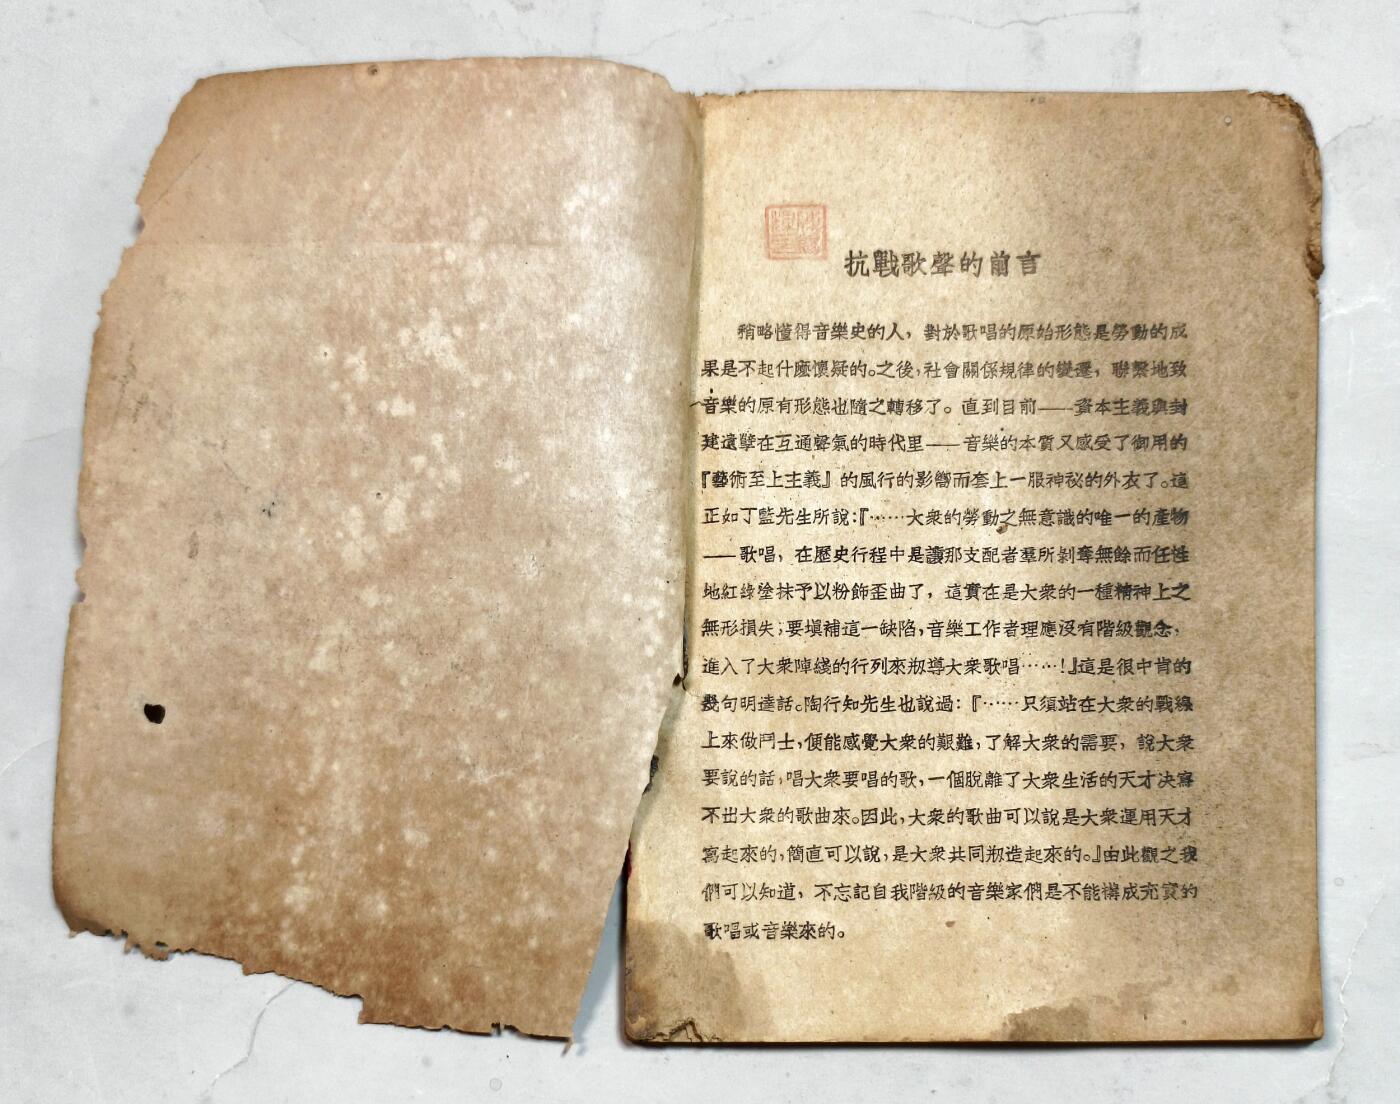 抗戰歌聲的前言
稍略懂得音樂史的人，對於歌唱的原始形態是勞動的成
果是不起什麼懷疑的。之後，社會關係規律的變遷，聯繫地致
音樂的原有形態也隨之轉移了。直到目前——資本主義與封
建遺孽在互通聲氣的時代里——音樂的本質又感受了御用的
『藝術至上主義』的風行的影嚮而套上一服神祕的外衣了。這
正如丁藍先生所說：『……大衆的勞動之無意識的唯一的產物
——歌唱，在歷史行程中是讓那支配者羣所剝奪無餘而任性
地紅綠塗抹予以粉飾歪曲了，這實在是大衆的一種精神上之
無形損失；要塡補這一缺陷，音樂工作者理應沒有階級觀念，
進入了大衆陣綫的行列來刱導大衆歌唱……！』這是很中肯的
幾句明達話。陶行知先生也說過：『……只須站在大衆的戰線
上來做鬥士，便能感覺大衆的艱難，了解大衆的需要，說大衆
要說的話，唱大衆要唱的歌，一個脫離了大衆生活的天才決寫
不出大衆的歌曲來。因此，大衆的歌曲可以說是大衆運用天才
寫起來的，簡直可以說，是大衆共同刱造起來的。』由此觀之我
們可以知道，不忘記自我階級的音樂家們是不能構成充實的
歌唱或音樂來的。